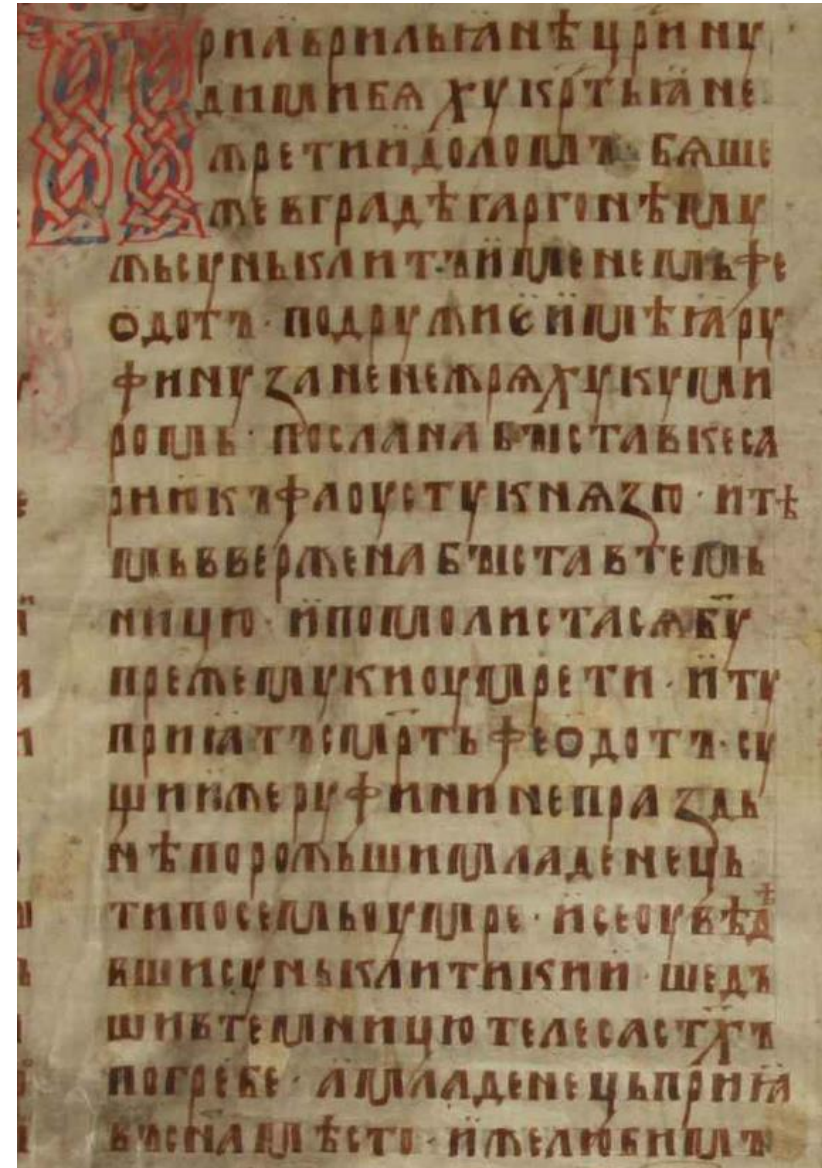 При аврильꙗнѣ цр҃и ну
дими бѧху крⷭ҇тьꙗне
жрети идоломъ · бѧше
же вградѣ гаргонѣ му
жь сунъклитъ именемь фе
ѡдотъ · подружиє имѣꙗ ру
фину зане не жрѧху куми
ромъ · послана быста вкеса
рию къ фаоусту кнѧзю · и тѣ
мь ввержена быста втемь
ницю · и помолиста сѧ бу҃
преже муки оумрети · и ту
приꙗтъ смр҃ть феѡдотъ · су
щи иже руфини непразⸯдь
нѣ порожьши младенець
ти посемь оумре · и се оувѣдѣ
вши сунъклитикии · шедъ
ши втемницю телеса ст҃хъ
погребе · а младенець приꙗ
въ сна мѣсто · и же любимъ